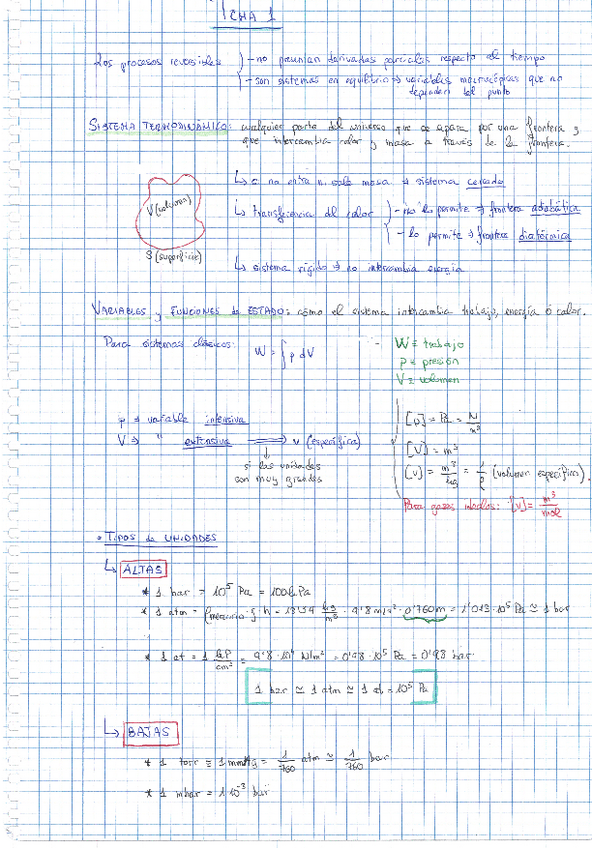 TEMA 1
Los procesos reversibles
- no presentan derivadas parciales respecto al tiempo
- son sistemas en equilibrio ⇒ variables macroscópicas que no
dependen del punto
SISTEMA TERMODINÁMICO: cualquier parte del universo que se separa por una frontera y
que intercambia calor y masa a través de la frontera.
V (volumen)
S (superficie)
↳ o no entra ni sale masa ⇒ sistema cerrado
↳ transferencia del calor
- no lo permite ⇒ frontera adiabática
- lo permite ⇒ frontera diatérmica
↳ sistema rígido ⇒ no intercambia energía
VARIABLES y FUNCIONES de ESTADO: cómo el sistema intercambia trabajo, energía o calor.
Para sistemas clásicos: W = ∫ p dV
W ≡ trabajo
p ≡ presión
V ≡ volumen
p ⇒ variable intensiva
V ⇒ " extensiva ⟹ v (específica)
si las unidades
son muy grandes
[p] = Pa = N/m²
[V] = m³
[v] = m³/kg = 1/ρ (volumen específico).
Para gases ideales: [v] = m³/mol
• TIPOS de UNIDADES
↳ ALTAS
* 1 bar = 10⁵ Pa = 100 kPa
* 1 atm = ρmercurio·g·h = 13'59 kg/m³ · 9'8 m/s² · 0'760 m = 1'013·10⁵ Pa ≃ 1 bar
* 1 at = 1 kp/cm² = 9'8·10⁴ N/m² = 0'98·10⁵ Pa = 0'98 bar
1 bar ≃ 1 atm ≃ 1 at = 10⁵ Pa
↳ BAJAS
* 1 torr ≡ 1 mmHg = 1/760 atm ≃ 1/760 bar
* 1 mbar = 1·10⁻³ bar